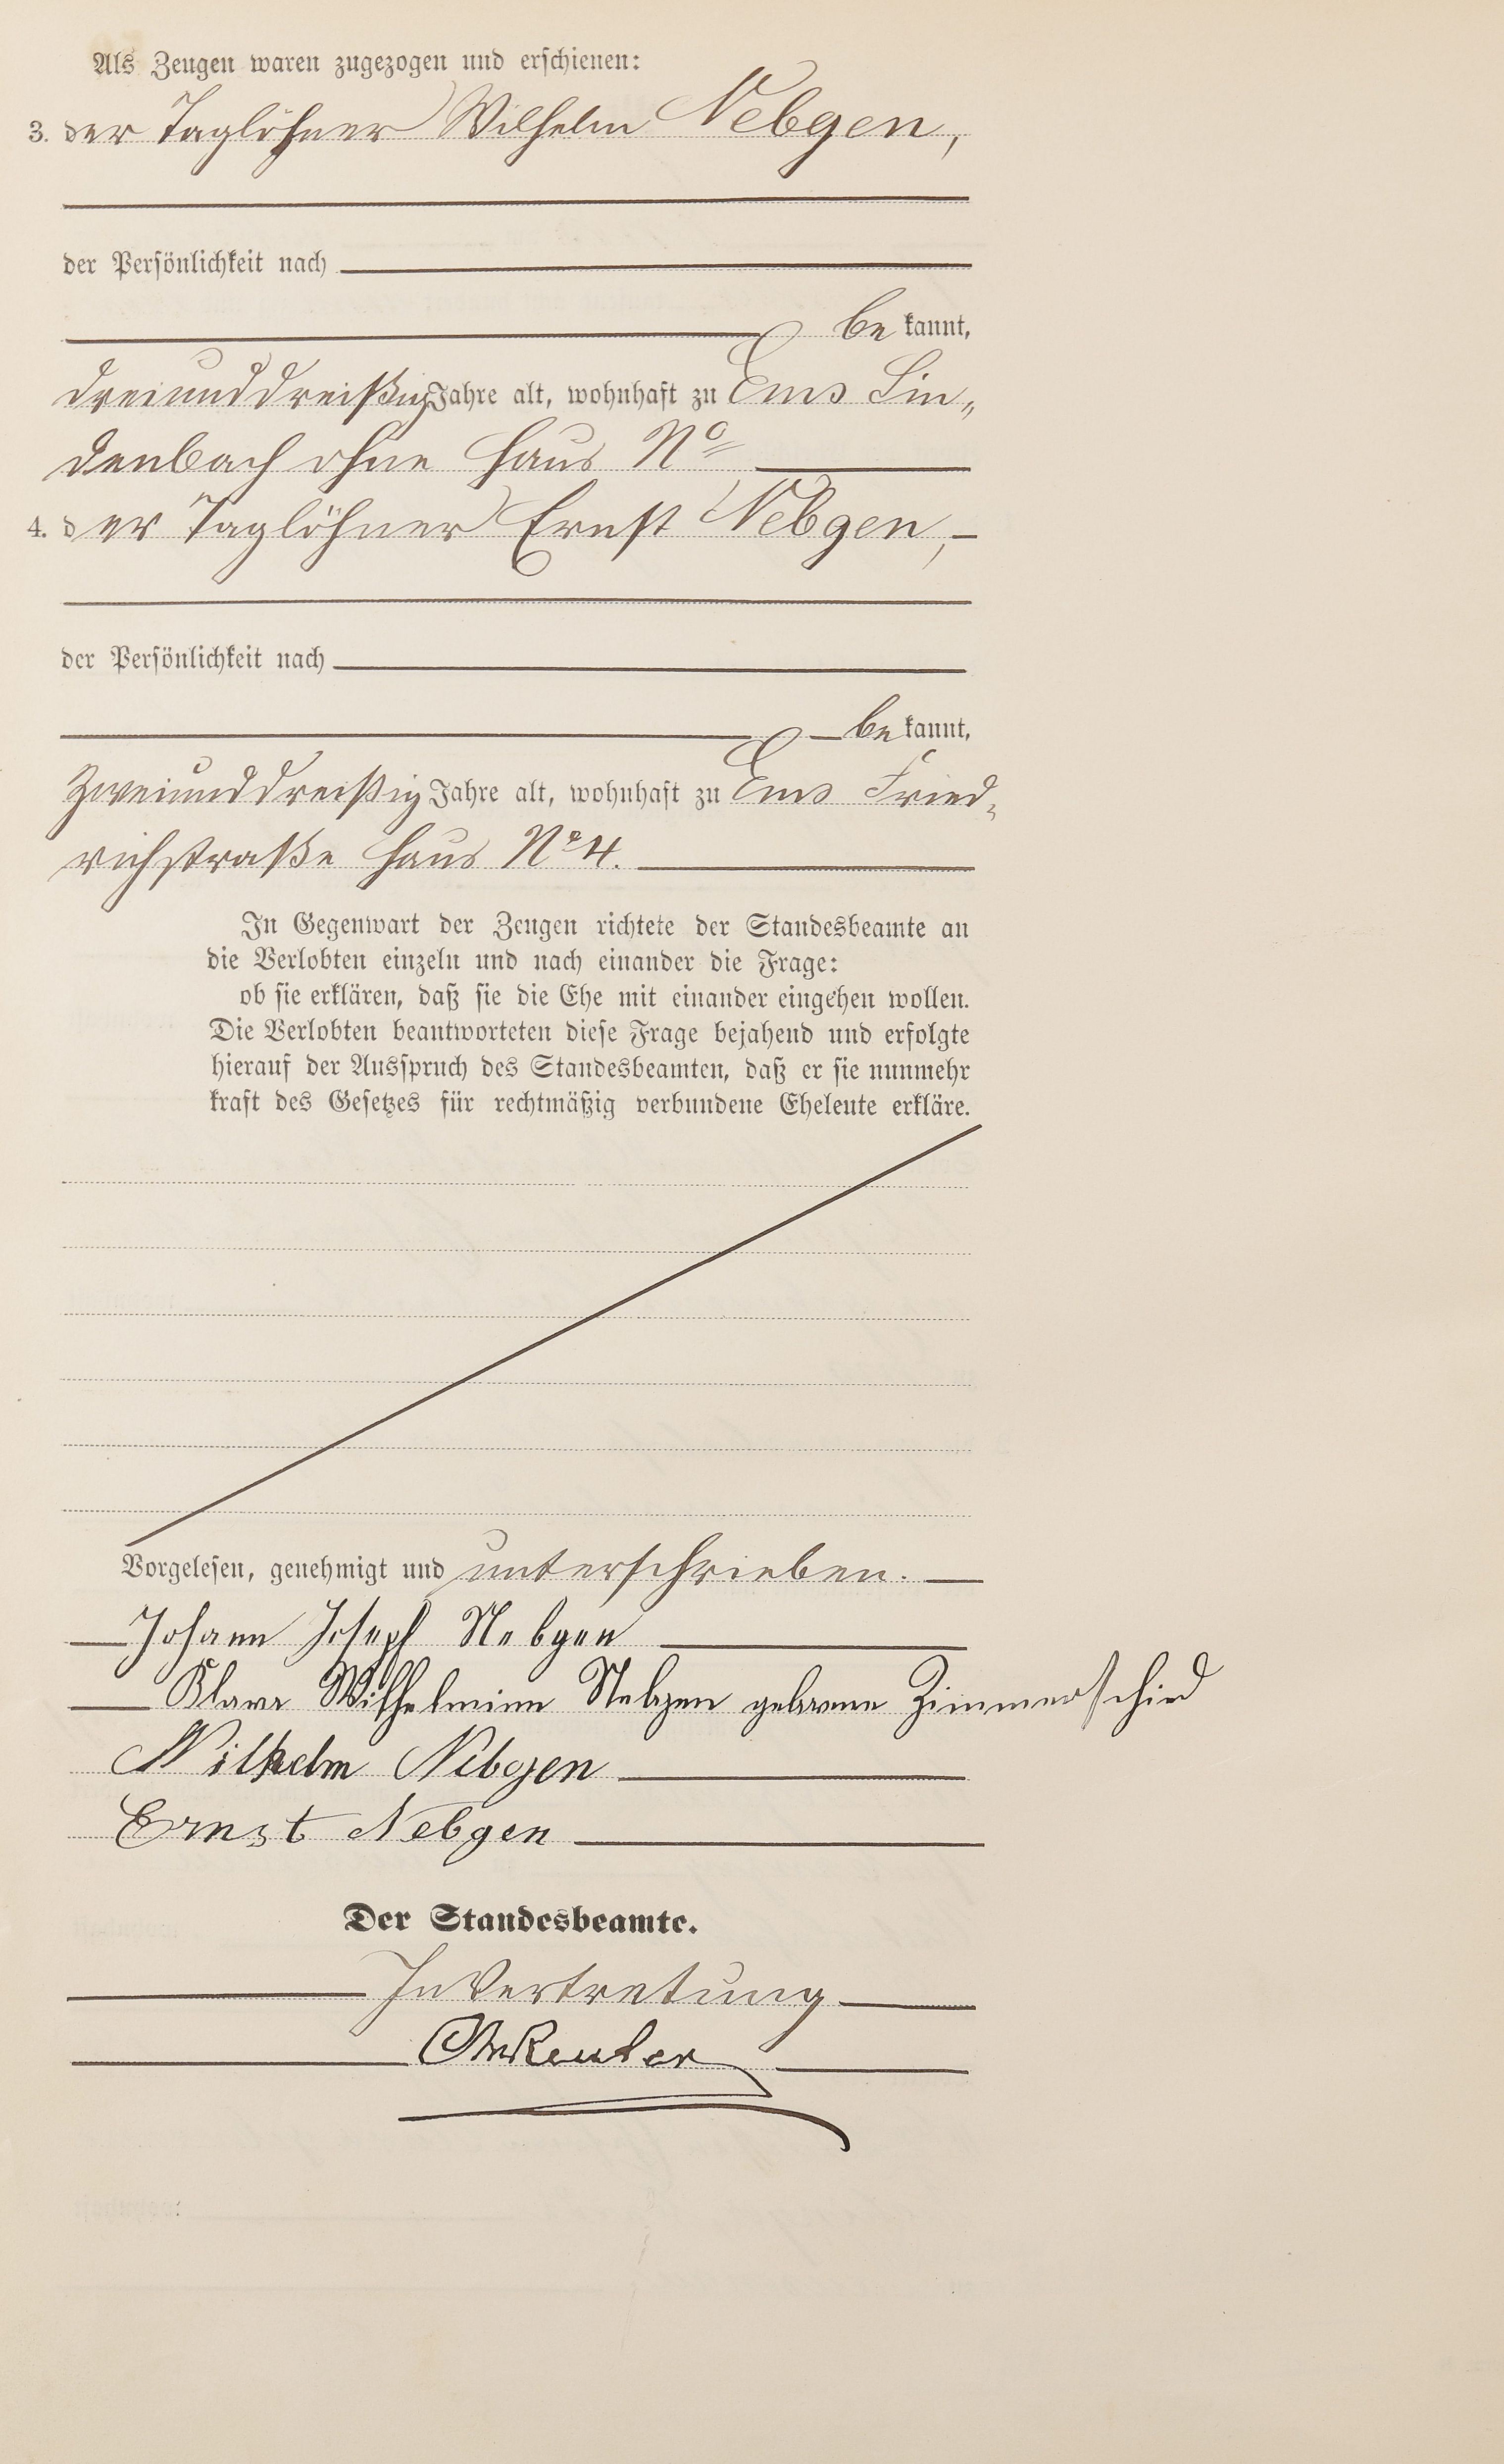 Als Zeugen waren zugezogen und erschienen:
3. der Taglöhner Wilhelm Nebgen,
der Persönlichkeit nach
be kannt,
dreiunddreißig Jahre alt, wohnhaft zu Ems Lin„
denbach ohne Haus No
4. der Taglöhner Ernst Nebgen,
der Persönlichkeit nach
be kannt,
zweiunddreißig Jahre alt, wohnhaft zu Ems Fried„
richstraße Haus No 4.
In Gegenwart der Zeugen richtete der Standesbeamte an
die Verlobten einzeln und nach einander die Frage:
ob sie erklären, daß sie die Ehe mit einander eingehen wollen.
Die Verlobten beantworteten diese Frage bejahend und erfolgte
hierauf der Ausspruch des Standesbeamten, daß er sie nunmehr
kraft des Gesetzes für rechtmäßig verbundene Eheleute erkläre.
Vorgelesen, genehmigt und unterschrieben.
Johann Joseph Nebgen
Wilhelmine Nebgen geborene Zimmerschied
Wilhelm Nebgen
Ernst Nebgen
Der Standesbeamte.
In Vertretung